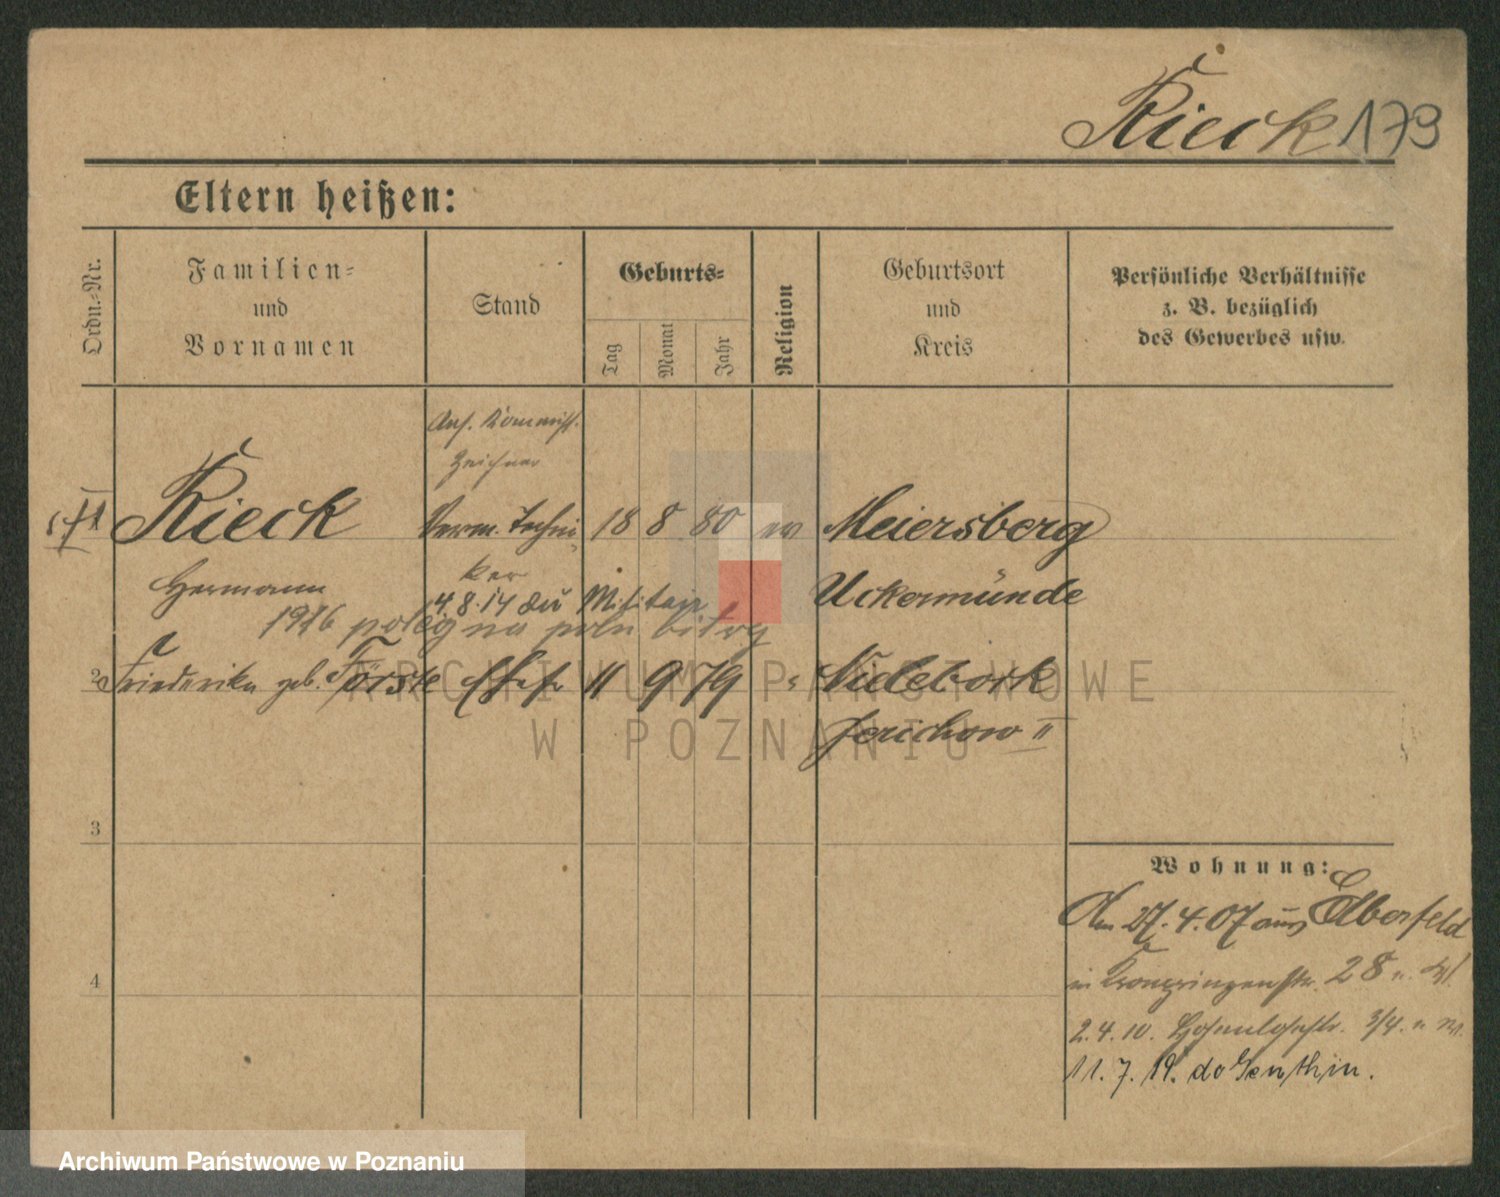 Rieck 173
Eltern heißen:
Ordn.-Nr.
Familien-
und
Vornamen
Stand
Geburts-
Tag
Monat
Jahr
Religion
Geburtsort
und
Kreis
Persönliche Verhältnisse
z. B. bezüglich
des Gewerbes usw.
Ans. Kommiss.
Zeichner
1 Rieck Verm. Techni 18 8 80 ev Meiersberg
Hermann ker Uckermünde
4.8.14 Militair
1916 poległ na polu bitwy
2 Friederike geb. Förste Ehefr 11 9 79 " Nielebock
Jerichow II
ARCHIWUM PAŃSTWOWE
W POZNANIU
3
Wohnung:
27.4.07 aus Elberfeld
in Kronprinzenstr. 28
4
2.4.10. 3/4.
11.7.19. do Genthin.
Archiwum Państwowe w Poznaniu